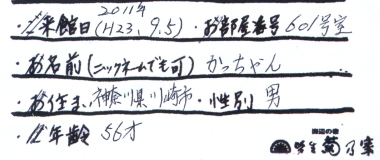 2011年
・ご来館日 (H23, 9.5) ・お部屋番号 601号室
・お名前(ニックネームでも可) かっちゃん
・お住まい 神奈川県川崎市 ・性別 男
・ご年齢 56才
海辺の宿
菊乃家